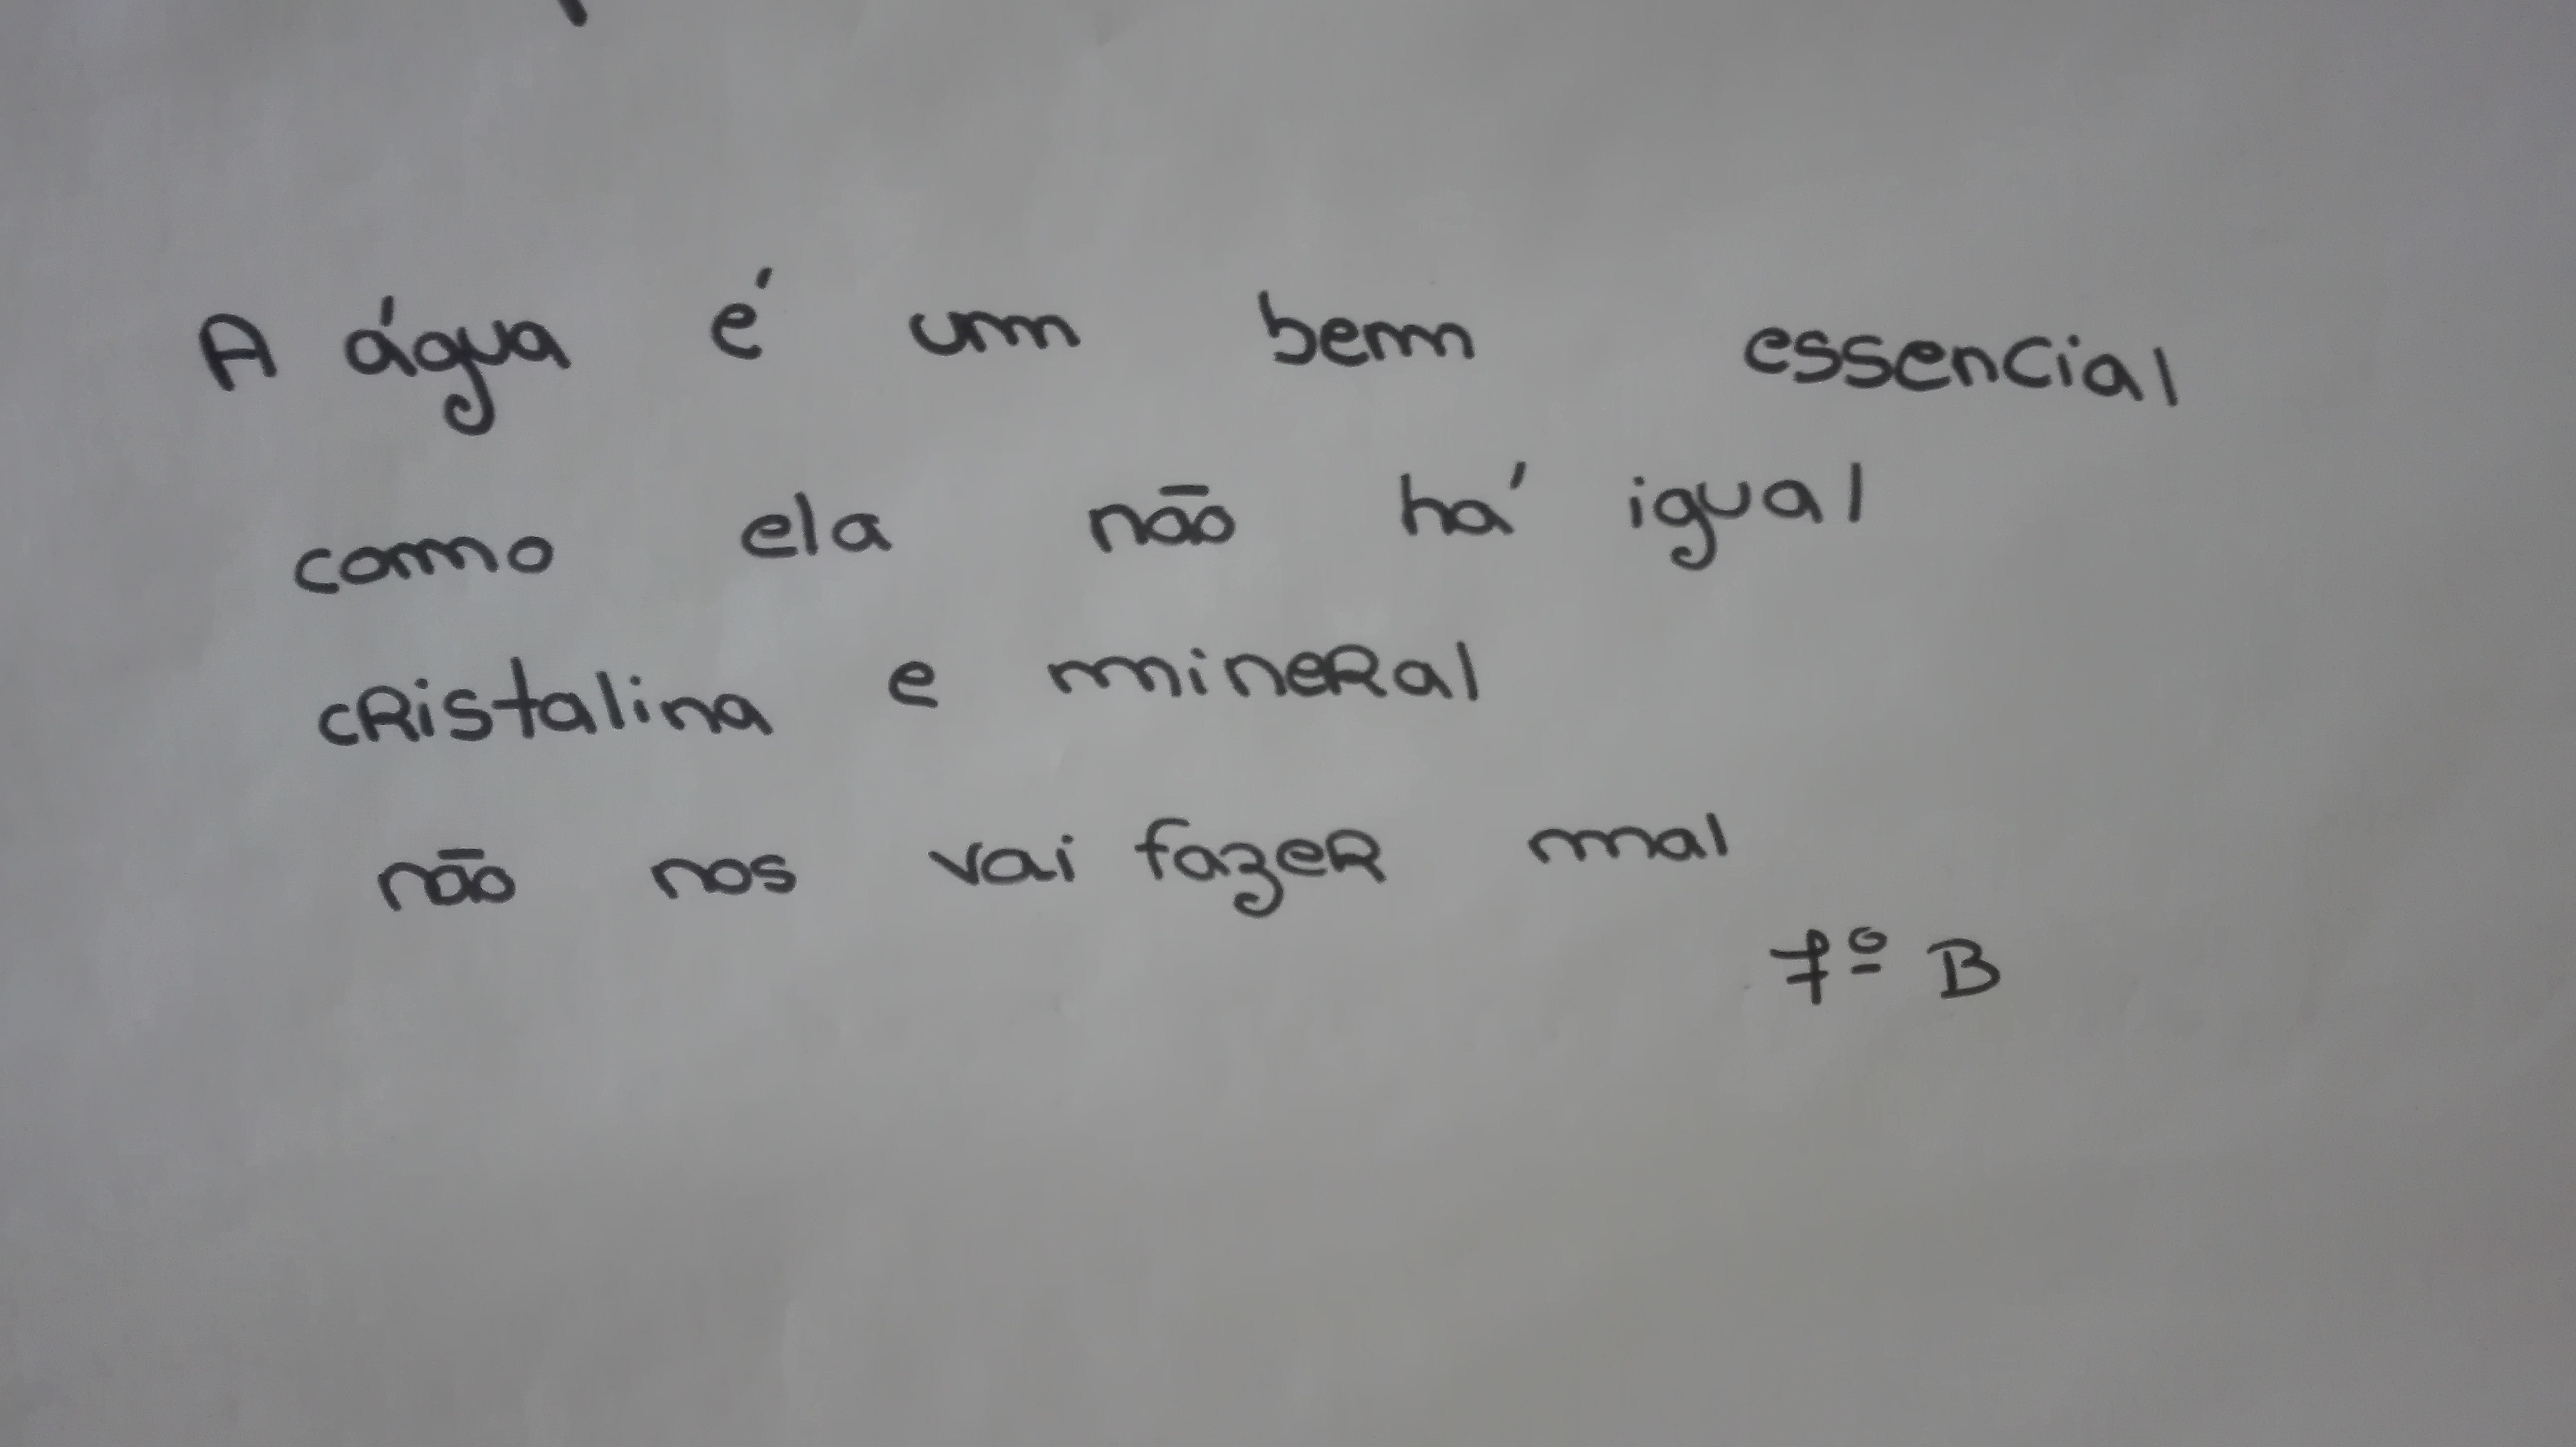 A água é um bem essencial
como ela não há igual
cRistalina e mineRal
não nos vai fazeR mal
7º B